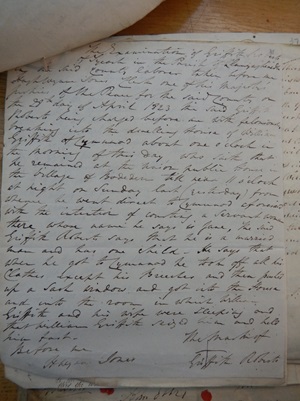 The Examination of Griffith Roberts
in the Parish of
in the said County Laborer taken before
Jones Clerk one of His Majesty's
Justices of the Peace for the said County on
the 28th day of April 1823 the said Griffith
Roberts being charged before me with feloniously
the dwelling House of William
Griffith of Tymawd about one o'clock in
the morning of this day who saith that
he remained at the Union public house in
the Village of Bodedern till near 11 o'clock
at night on Sunday last (yesterday) from
whence he went direct to Tymawd aforesaid
with the intention of courting a Servant woman
there whose name he says is Jane, the said
Griffith Roberts says that he is a married
man and has one Child. He says that
when he got to Tymawd he took off all his
Clothes except his Breeches and then pulled
up a Sash window and got into the House
and into the room in which William
Griffith and his wife were sleeping and
that William Griffith seized him and held
him fast.
Before me The mark of
Jones Griffith Roberts